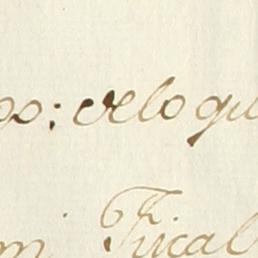 po: de lo qu
m Fiscal